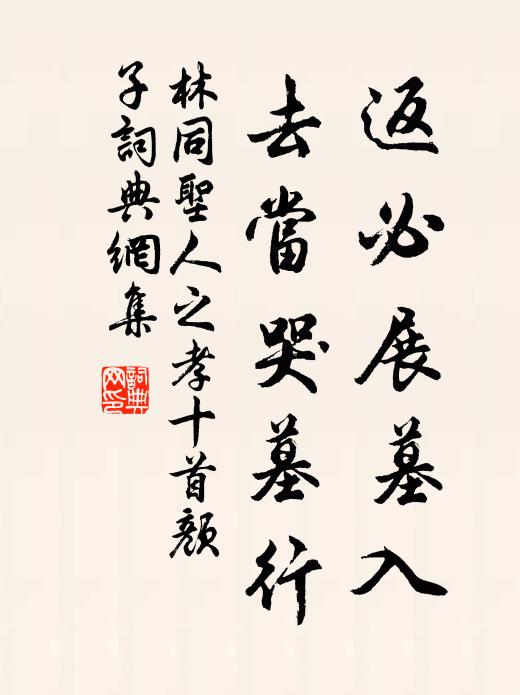 返必展墓入
去當哭墓行
林同聖人之孝十首顏
子詞典網集
詞典
网印